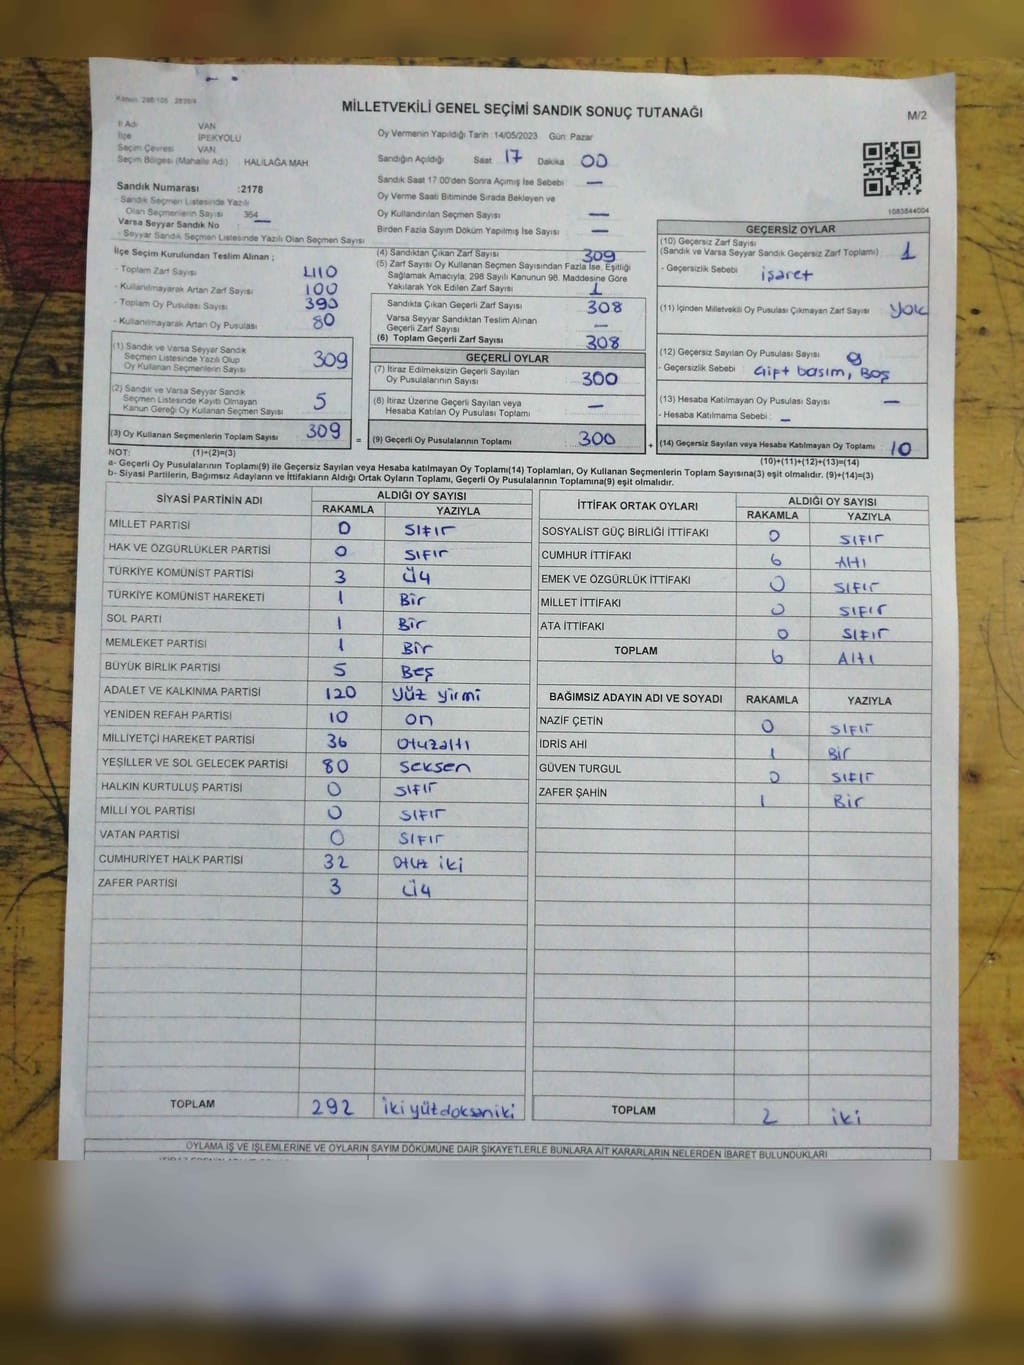 Kanun: 298/105 2839/4
MİLLETVEKİLİ GENEL SEÇİMİ SANDIK SONUÇ TUTANAĞI
M/2
İl Adı VAN
İlçe İPEKYOLU
Seçim Çevresi VAN
Seçim Bölgesi (Mahalle Adı) HALİLAĞA MAH
Sandık Numarası :2178
Sandık Seçmen Listesinde Yazılı
Olan Seçmenlerin Sayısı 364
Varsa Seyyar Sandık No —
Seyyar Sandık Seçmen Listesinde Yazılı Olan Seçmen Sayısı
Oy Vermenin Yapıldığı Tarih :14/05/2023 Gün: Pazar
Sandığın Açıldığı Saat 17 Dakika 00
Sandık Saat 17:00'den Sonra Açımış İse Sebebi —
Oy Verme Saati Bitiminde Sırada Bekleyen ve
Oy Kullandırılan Seçmen Sayısı —
Birden Fazla Sayım Döküm Yapılmış İse Sayısı —
1083844004
İlçe Seçim Kurulundan Teslim Alınan ;
- Toplam Zarf Sayısı 410
- Kullanılmayarak Artan Zarf Sayısı 100
- Toplam Oy Pusulası Sayısı 390
- Kullanılmayarak Artan Oy Pusulası 80
(1) Sandık ve Varsa Seyyar Sandık
Seçmen Listesinde Yazılı Olup
Oy Kullanan Seçmenlerin Sayısı 309
(2) Sandık ve Varsa Seyyar Sandık
Seçmen Listesinde Kayıtlı Olmayan
Kanun Gereği Oy Kullanan Seçmen Sayısı 5
(3) Oy Kullanan Seçmenlerin Toplam Sayısı 309
(4) Sandıktan Çıkan Zarf Sayısı 309
(5) Zarf Sayısı Oy Kullanan Seçmen Sayısından Fazla İse, Eşitliği
Sağlamak Amacıyla, 298 Sayılı Kanunun 98. Maddesine Göre
Yakılarak Yok Edilen Zarf Sayısı 1
Sandıkta Çıkan Geçerli Zarf Sayısı 308
Varsa Seyyar Sandıktan Teslim Alınan
Geçerli Zarf Sayısı —
(6) Toplam Geçerli Zarf Sayısı 308
GEÇERLİ OYLAR
(7) İtiraz Edilmeksizin Geçerli Sayılan
Oy Pusulalarının Sayısı 300
(8) İtiraz Üzerine Geçerli Sayılan veya
Hesaba Katılan Oy Pusulası Toplamı —
= (9) Geçerli Oy Pusulalarının Toplamı 300
GEÇERSİZ OYLAR
(10) Geçersiz Zarf Sayısı
(Sandık ve Varsa Seyyar Sandık Geçersiz Zarf Toplamı) 1
- Geçersizlik Sebebi işaret
(11) İçinden Milletvekili Oy Pusulası Çıkmayan Zarf Sayısı yok
(12) Geçersiz Sayılan Oy Pusulası Sayısı 9
- Geçersizlik Sebebi Çift basım, Boş
(13) Hesaba Katılmayan Oy Pusulası Sayısı —
- Hesaba Katılmama Sebebi : —
+ (14) Geçersiz Sayılan veya Hesaba Katılmayan Oy Toplamı 10
NOT: (1)+(2)=(3) (10)+(11)+(12)+(13)=(14)
a- Geçerli Oy Pusulalarının Toplamı(9) ile Geçersiz Sayılan veya Hesaba katılmayan Oy Toplamı(14) Toplamları, Oy Kullanan Seçmenlerin Toplam Sayısına(3) eşit olmalıdır. (9)+(14)=(3)
b- Siyasi Partilerin, Bağımsız Adayların ve İttifakların Aldığı Ortak Oyların Toplamı, Geçerli Oy Pusulalarının Toplamına(9) eşit olmalıdır.
SİYASİ PARTİNİN ADI ALDIĞI OY SAYISI
RAKAMLA YAZIYLA
MİLLET PARTİSİ 0 SIFIR
HAK VE ÖZGÜRLÜKLER PARTİSİ 0 SIFIR
TÜRKİYE KOMÜNİST PARTİSİ 3 Üç
TÜRKİYE KOMÜNİST HAREKETİ 1 Bir
SOL PARTİ 1 Bir
MEMLEKET PARTİSİ 1 Bir
BÜYÜK BİRLİK PARTİSİ 5 Beş
ADALET VE KALKINMA PARTİSİ 120 yüz yirmi
YENİDEN REFAH PARTİSİ 10 on
MİLLİYETÇİ HAREKET PARTİSİ 36 Otuzaltı
YEŞİLLER VE SOL GELECEK PARTİSİ 80 seksen
HALKIN KURTULUŞ PARTİSİ 0 SIFIR
MİLLİ YOL PARTİSİ 0 SIFIR
VATAN PARTİSİ 0 SIFIR
CUMHURİYET HALK PARTİSİ 32 Otuz iki
ZAFER PARTİSİ 3 Üç
TOPLAM 292 ikiyüzdoksaniki
İTTİFAK ORTAK OYLARI ALDIĞI OY SAYISI
RAKAMLA YAZIYLA
SOSYALİST GÜÇ BİRLİĞİ İTTİFAKI 0 SIFIR
CUMHUR İTTİFAKI 6 Altı
EMEK VE ÖZGÜRLÜK İTTİFAKI 0 SIFIR
MİLLET İTTİFAKI 0 SIFIR
ATA İTTİFAKI 0 SIFIR
TOPLAM 6 Altı
BAĞIMSIZ ADAYIN ADI VE SOYADI RAKAMLA YAZIYLA
NAZİF ÇETİN 0 SIFIR
İDRİS AHİ 1 Bir
GÜVEN TURGUL 0 SIFIR
ZAFER ŞAHİN 1 Bir
TOPLAM 2 iki
OYLAMA İŞ VE İŞLEMLERİNE VE OYLARIN SAYIM DÖKÜMÜNE DAİR ŞİKAYETLERLE BUNLARA AİT KARARLARIN NELERDEN İBARET BULUNDUKLARI